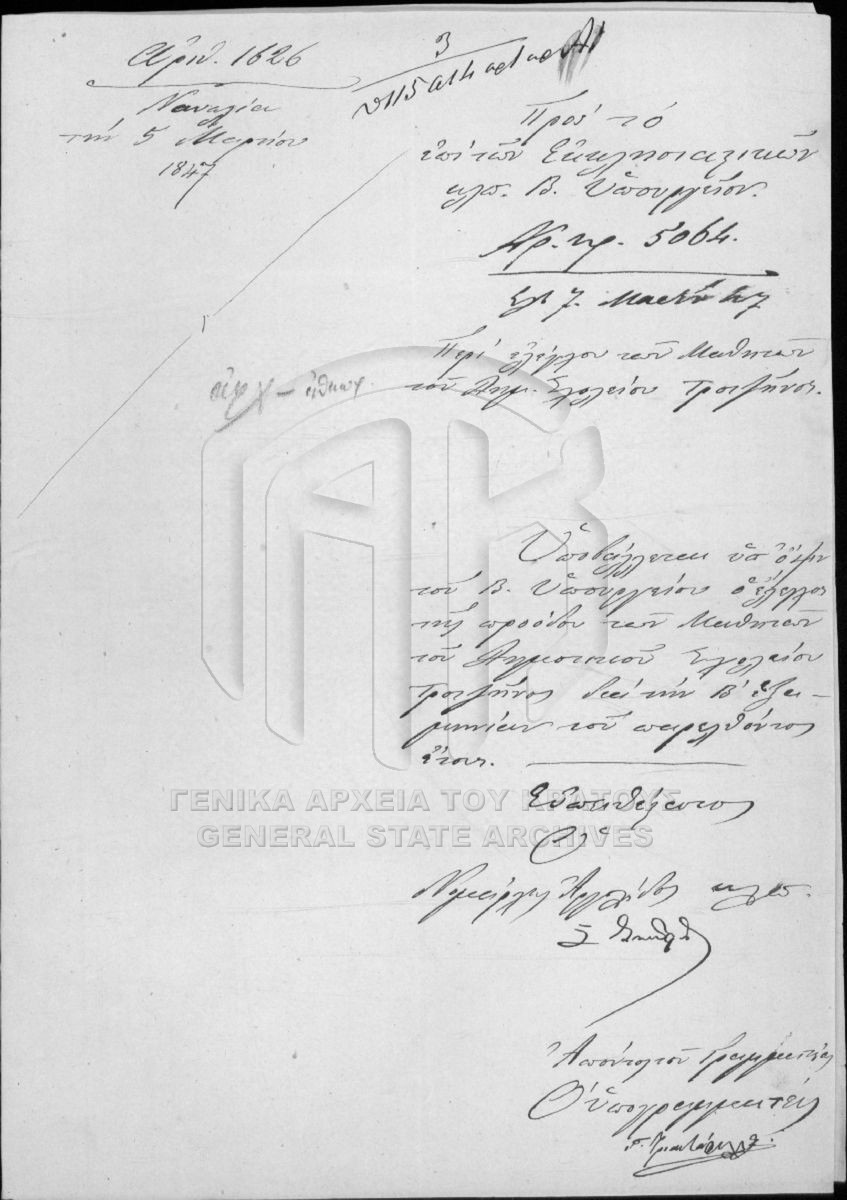 Ἀριθ. 1626
Ναυπλίᾳ
τήν 5 Μαρτίου
1847
3
Πρός τό
ἐπί τῶν Ἐκκλησιαστικῶν
κλπ. Β. Ὑπουργεῖον.
Ἀρ. πρ. 5064.
7. Μαρτίου 47
Περί ἐλέγχου τῶν Μαθητῶν
τοῦ Δημ. Σχολείου Τροιζῆνος.
Ὑποβάλλεται ὑπ' ὄψιν
τοῦ Β. Ὑπουργείου ὁ ἔλεγχος
τῆς προόδου τῶν Μαθητῶν
τοῦ Δημοτικοῦ Σχολείου
Τροιζῆνος διά τήν Β' ἑξα-
μηνίαν τοῦ παρελθόντος
ἔτους.
Εὐπειθέστατος
Ὁ
Νομάρχης Ἀργολίδος κλπ.
ΓΕΝΙΚΑ ΑΡΧΕΙΑ ΤΟΥ ΚΡΑΤΟΥΣ
GENERAL STATE ARCHIVES
Ἀπόντος τοῦ Γραμματέως
Ὁ ὑπογραμματεύς